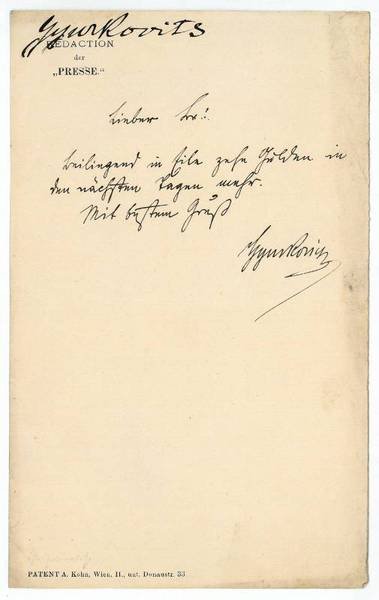 Gyurkovits
REDACTION
der
„PRESSE.“
Lieber Dr!
Beiliegend in Eile zehn Gulden in
den nächsten Tagen mehr.
Mit bestem Gruß
Gyurkovics
PATENT A. Kohn, Wien, II., unt. Donaustr. 33